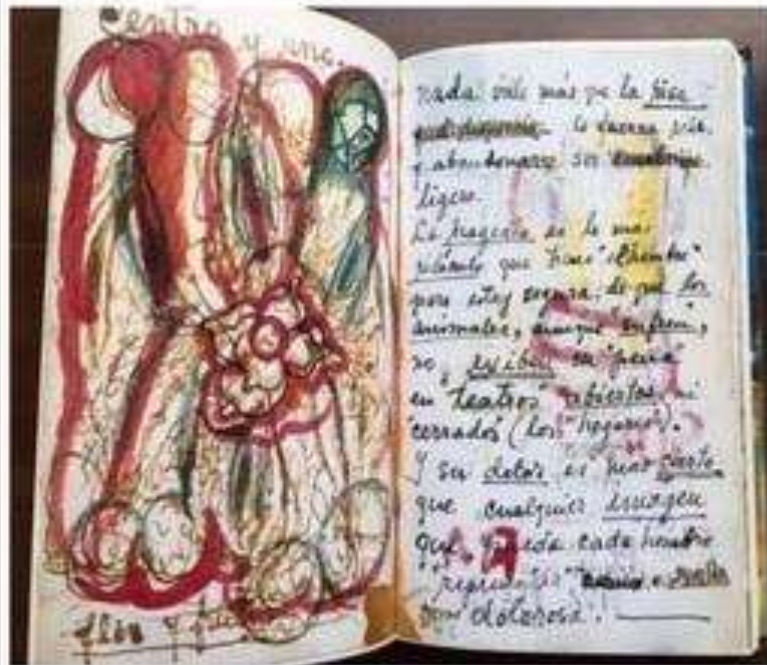 Centro y uno.
flor y fru
nada vale más que la risa
es fuerza reir
y abandonarse. ser
ligero.
La tragedia es lo más
ridículo que tiene "el hombre"
pero estoy segura, de que los
animales, aunque "sufren",
no exiben su "pena"
en "teatros" abiertos, ni
"cerrados" (los "hogares").
Y su dolor es más cierto
que cualquier imagen
que pueda cada hombre
"representar"
dolorosa.